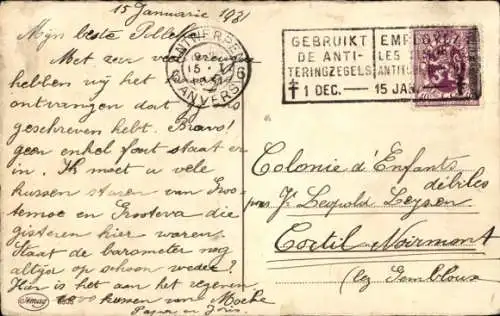 15 Januarie 1931
Mijn beste
Met zeer veel vreugde
hebben wij het
ontvangen dat
geschreven hebt. Bravo!
geen enkel fout staat er
in. Ik moet u vele
kussen sturen van Groo-
temoe en Grooteva die
gisteren hier waren.
Staat de barometer nog
altijd op schoon weder?
Hier is het aan het regenen
1000 kussen van Moeke
Papa en Joris.
ANTWERPEN
6 6
15
ANVERS
GEBRUIKT
DE ANTI-
TERINGZEGELS
1 DEC. — 15 JAN
EMPLOYEZ
LES
Colonie d'Enfants
débiles
Jf Leopold Leysen
Cortil-Noirmont
(lez Gembloux